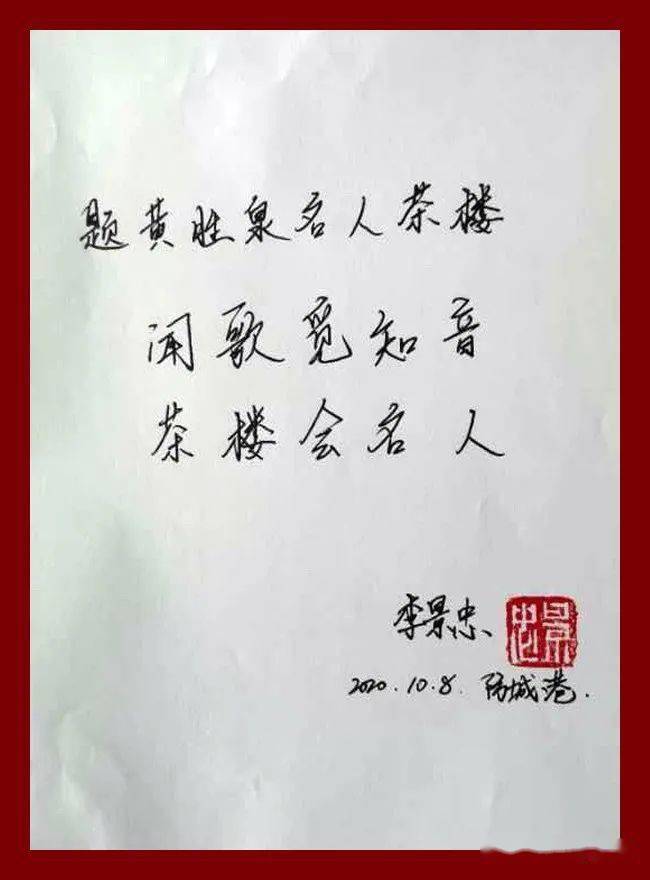 题黄胜泉名人茶楼
闻歌觅知音
茶楼会名人
李景忠
景忠
2020.10.8. 防城港.